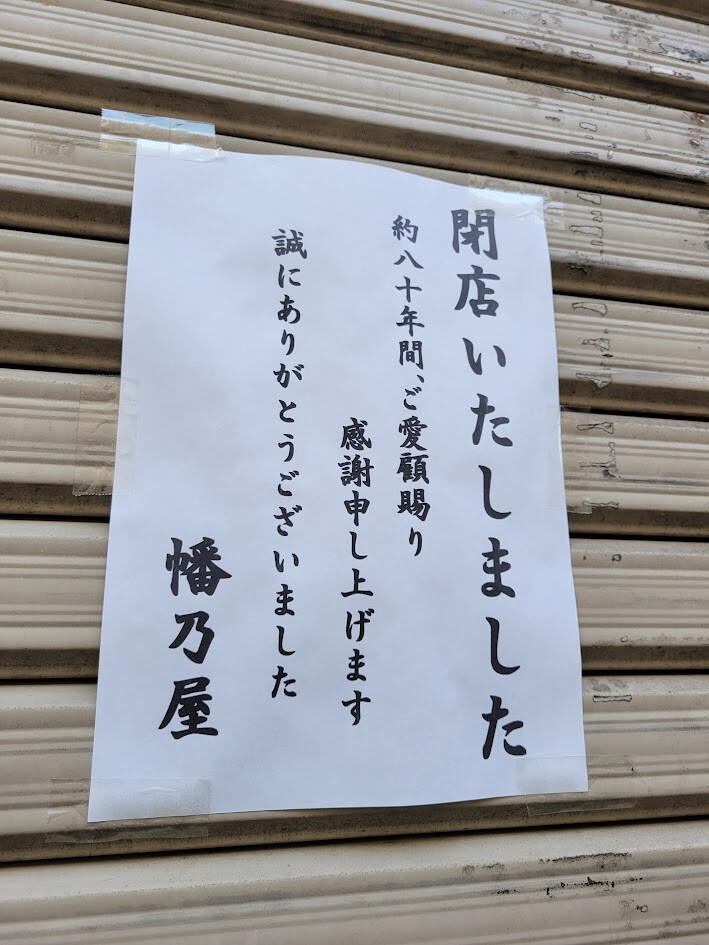 閉店いたしました
約八十年間、ご愛顧賜り
感謝申し上げます
誠にありがとうございました
幡乃屋